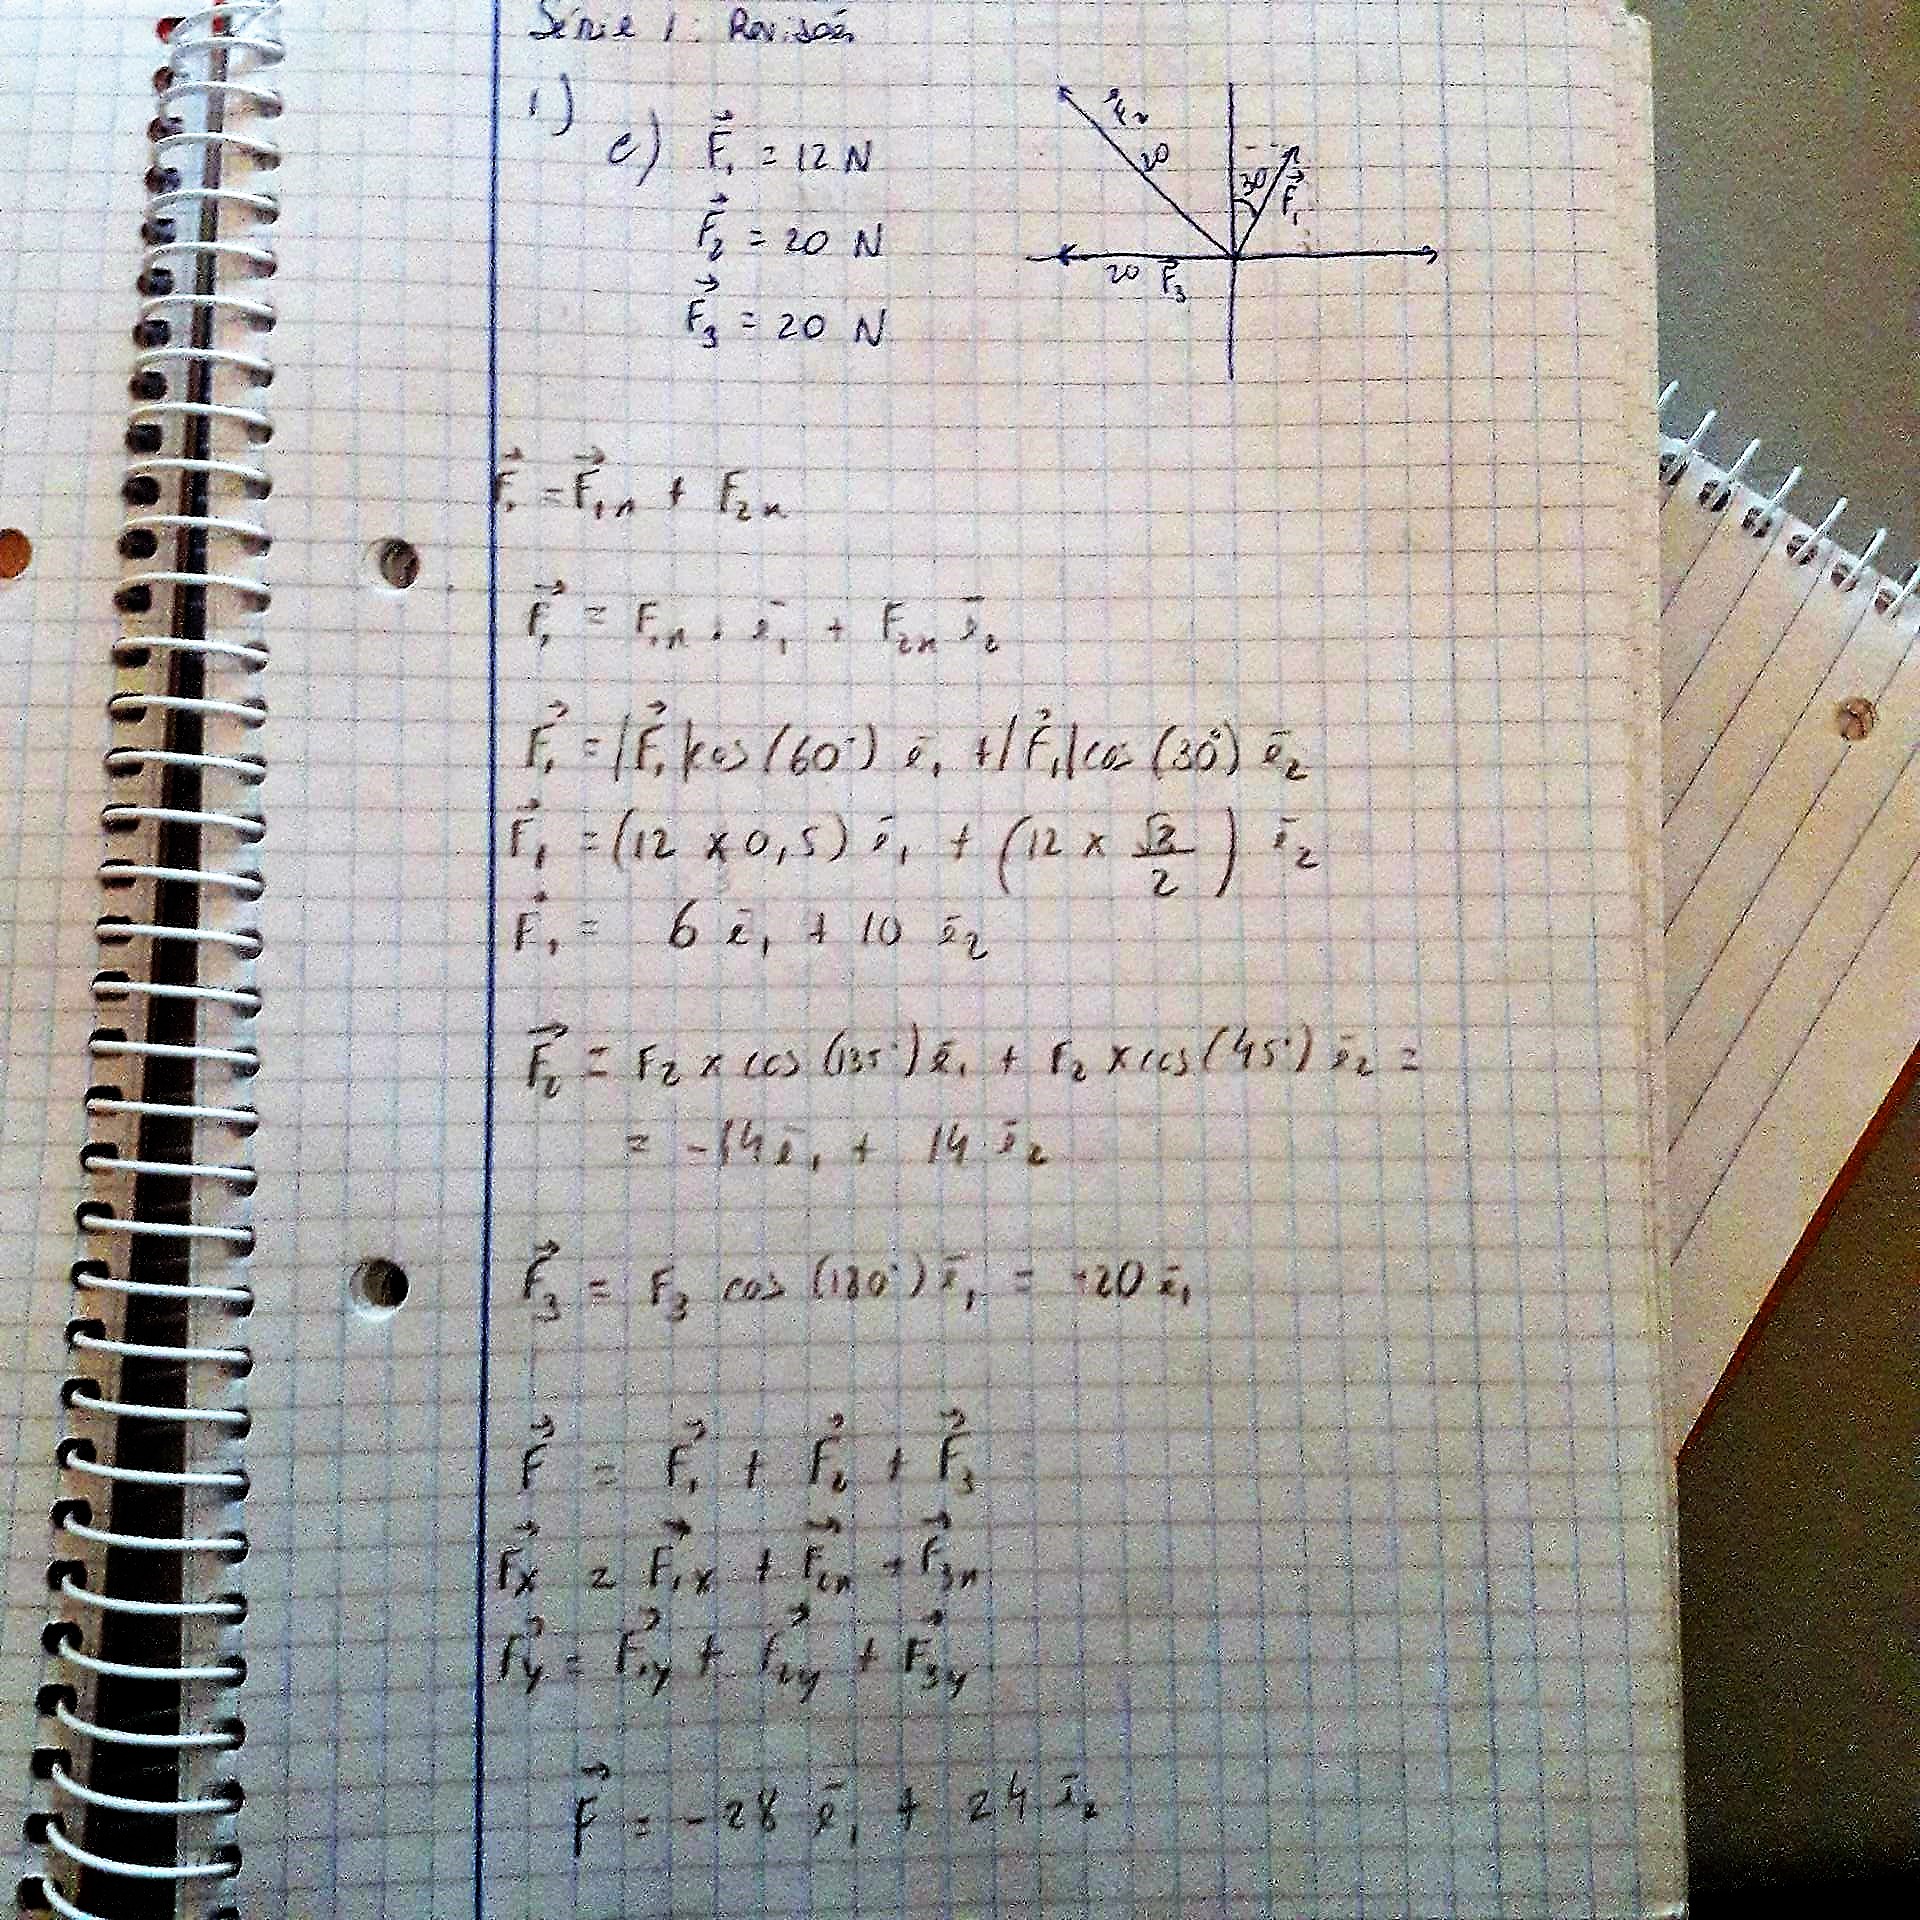 Série 1: Revisões
1)
c) F⃗₁ = 12 N
F⃗₂ = 20 N
F⃗₃ = 20 N
F⃗₂
20
30
F⃗₁
20 F⃗₃
F⃗₁ = F⃗₁ₓ + F₂ₓ
F⃗₁ = F₁ₓ . ē₁ + F₂ₓ ē₂
F⃗₁ = |F⃗₁|cos(60°) ē₁ + |F⃗₁|cos(30°) ē₂
F⃗₁ = (12 × 0,5) ē₁ + (12 × √3/2) ē₂
F⃗₁ = 6 ē₁ + 10 ē₂
F⃗₂ = F₂ × cos(135°) ē₁ + F₂ × cos(45°) ē₂ =
= -14 ē₁ + 14 ē₂
F⃗₃ = F₃ cos(180°) ē₁ = -20 ē₁
F⃗ = F⃗₁ + F⃗₂ + F⃗₃
F⃗x = F⃗₁x + F⃗₂x + F⃗₃x
F⃗y = F⃗₁y + F⃗₂y + F⃗₃y
F⃗ = -28 ē₁ + 24 ē₂